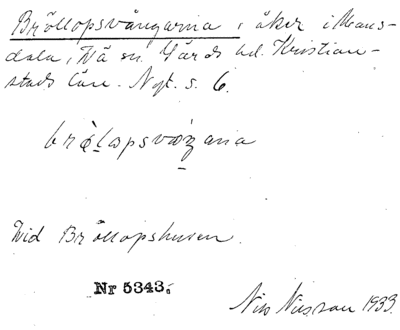 Bröllopsvångarna, åker i Mans-
dala, Nä sn Gärds hd. Kristian-
stads län. Nyt. s. 6.
brö̀lɔpsvæŋ̠ana
Vid Bröllopshusen.
Nr 5343.
Nils Nilsson 1933.